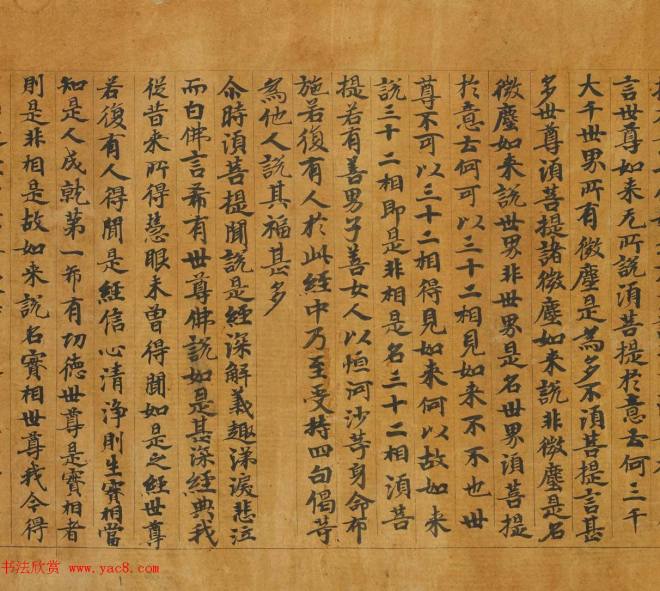 言世尊如来无所說湏菩提於意云何三千
大千世界所有微塵是為多不湏菩提言甚
多世尊湏菩提諸微塵如来說非微塵是名
微塵如来說世界非世界是名世界湏菩提
於意云何可以三十二相見如来不不也世
尊不可以三十二相得見如来何以故如来
說三十二相即是非相是名三十二相湏菩
提若有善男子善女人以恒河沙等身命布
施若復有人於此經中乃至受持四句偈等
為他人說其福甚多
尒時湏菩提聞說是經深解義趣涕淚悲泣
而白佛言希有世尊佛說如是甚深經典我
從昔来所得慧眼未曾得聞如是之經世尊
若復有人得聞是經信心清淨則生實相當
知是人成就第一希有功徳世尊是實相者
則是非相是故如来說名實相世尊我今得
书法欣赏 www.yac8.com